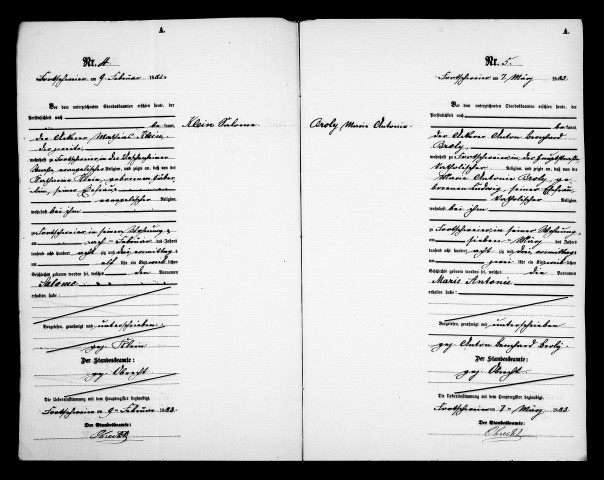 A.
Nr. 4.
am 9. Februar 1883.
Vor dem unterzeichneten Standesbeamten erschien heute, der
Persönlichkeit nach
be kannt,
der Ackerer Mathias Klein,
der zweite,
wohnhaft zu
Straße, evangelischer Religion, und zeigte an, daß von der
Klein, geborenen
seiner Ehefrau,
evangelischer Religion,
wohnhaft bei ihm
zu in seiner Wohnung,
am Februar des Jahres
tausend acht hundert acht zig drei, vormittags
um elf Uhr ein Kind weiblichen
Geschlechts geboren worden sei, welches den Vornamen
Salome
erhalten habe
Vorgelesen, genehmigt und unterschrieben
gez. Klein
Der Standesbeamte:
gez. Obrecht
Die Uebereinstimmung mit dem Hauptregister beglaubigt.
am 9ten Februar 1883.
Der Standesbeamte:
Obrecht
Klein Salome
Broly Marie Antonie
A.
Nr. 5.
am 7. März 1883.
Vor dem unterzeichneten Standesbeamten erschien heute, der
Persönlichkeit nach
be kannt,
der Ackerer Anton Bernhard
Broly,
wohnhaft zu in der Hauptstraße
katholischer Religion, und zeigte an, daß von der
Marie Antonie Broly, ge-
borenen Ludwig, seiner Ehefrau,
katholischer Religion,
wohnhaft bei ihm
zu in seiner Wohnung,
am sieben ten März des Jahres
tausend acht hundert acht zig drei, vormittags
um zwei Uhr ein Kind weiblichen
Geschlechts geboren worden sei, welches die Vornamen
Marie Antonie
erhalten habe
Vorgelesen, genehmigt und unterschrieben
gez. Anton Bernhard Broly
Der Standesbeamte:
gez. Obrecht
Die Uebereinstimmung mit dem Hauptregister beglaubigt.
am 7ten März 1883.
Der Standesbeamte:
Obrecht